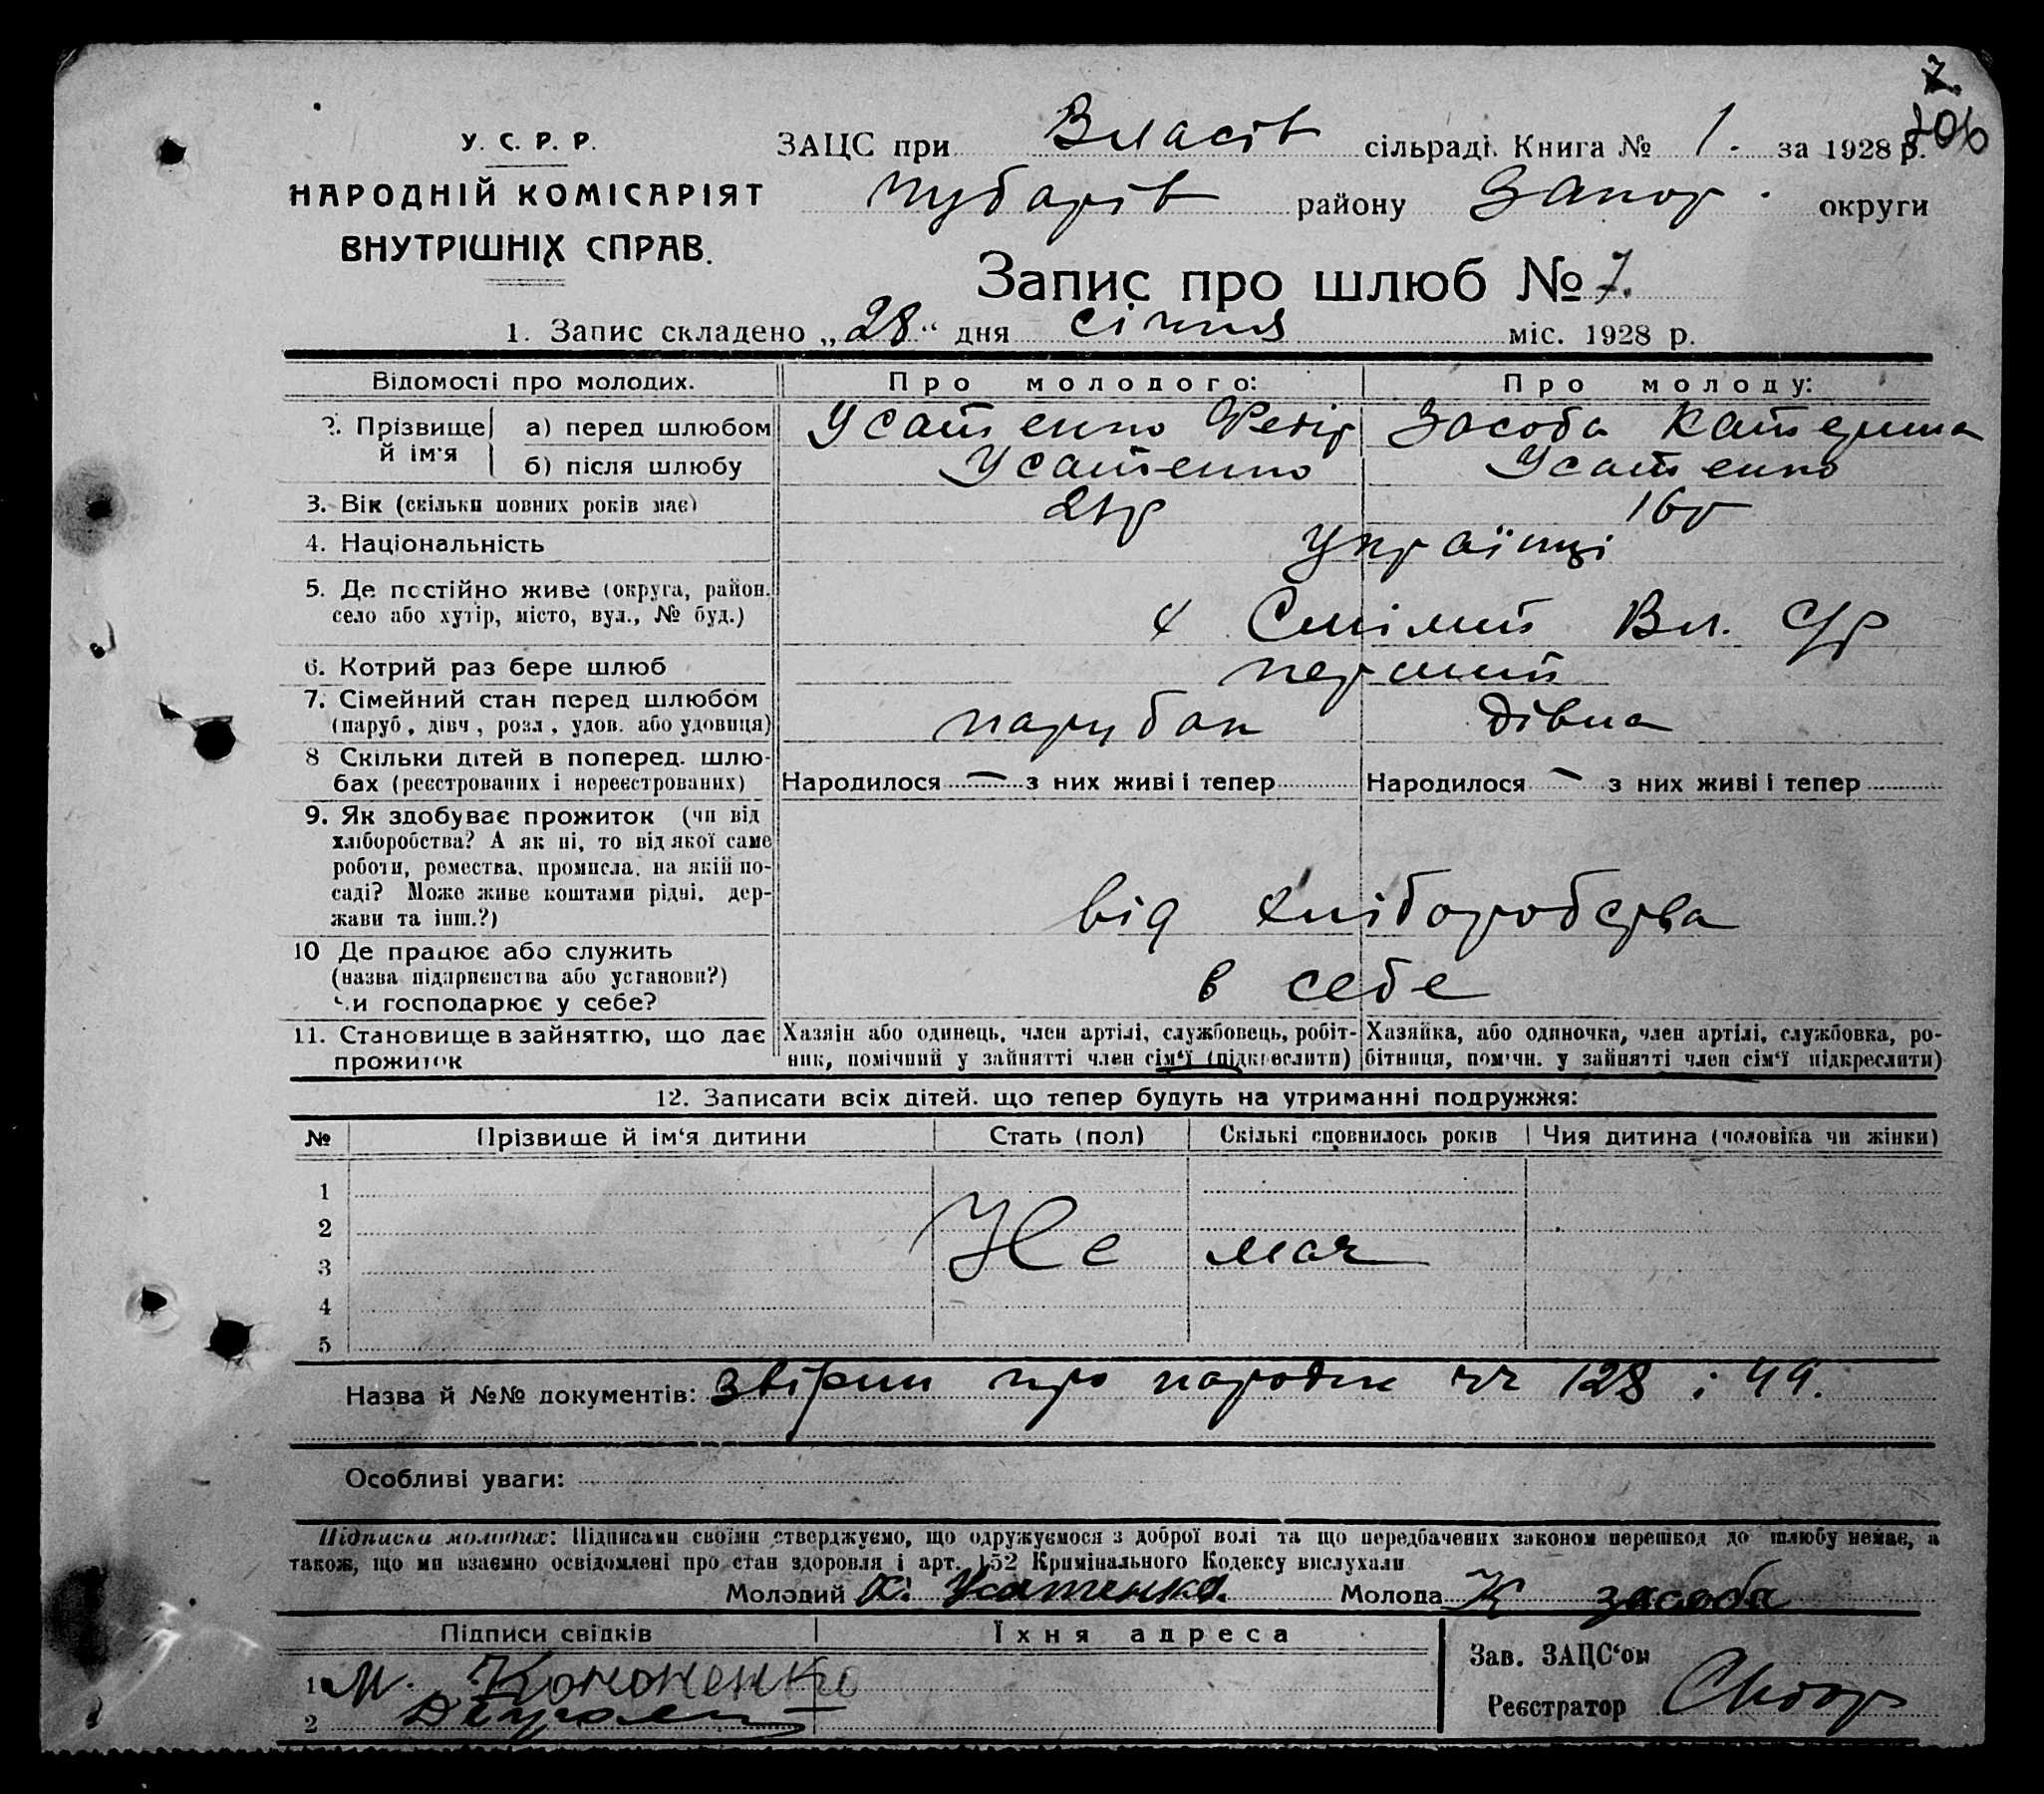 У. С. Р. Р.
НАРОДНІЙ КОМІСАРІЯТ
ВНУТРІШНІХ СПРАВ.
ЗАЦС при Власів сільраді. Книга № 1. за 1928 р.
Чубарів району Запор. округи
Запис про шлюб № 7.
1. Запис складено „28“ дня січня міс. 1928 р.
Відомості про молодих. Про молодого: Про молоду:
2. Прізвище й ім'я а) перед шлюбом Усатенко Федір Засоба Катерина
б) після шлюбу Усатенко Усатенко
3. Вік (скільки повних років має) 21р 16р
4. Національність Українці
5. Де постійно живе (округа, район,
село або хутір, місто, вул., № буд.) х Смілий Вл. С/р
6. Котрий раз бере шлюб перший
7. Сімейний стан перед шлюбом
(паруб, дівч, розл, удов. або удовиця) парубок дівка
8 Скільки дітей в поперед. шлю-
бах (реєстрованих і нереєстрованих) Народилося — з них живі і тепер Народилося — з них живі і тепер
9. Як здобуває прожиток (чи від
хліборобства? А як ні, то від якої саме
роботи, ремества, промисла, на якій по-
саді? Може живе коштами рідні, дер-
жави та інш.?) від хліборобства
10 Де працює або служить
(назва підприємства або установи?)
Чи господарює у себе? в себе
11. Становище в зайняттю, що дає
прожиток
Хазяїн або одинець, член артілі, службовець, робіт-
ник, помічний у зайнятті член сім'ї (підкреслити)
Хазяйка, або одиночка, член артілі, службовка, ро-
бітниця, помічн. у зайнятті член сім'ї підкреслити)
12. Записати всіх дітей. що тепер будуть на утриманні подружжя:
№ Прізвище й ім'я дитини Стать (пол) Скількі сповнилось років Чия дитина (чоловіка чи жінки)
1
2
3 Не має
4
5
Назва й №№ документів: звірили про народж 128 і 49.
Особливі уваги:
Підписки молодих: Підписами своїми стверджуємо, що одружуємося з доброї волі та що передбачених законом перешкод до шлюбу немає, а
також, що ми взаємно освідомлені про стан здоровля і арт. 152 Кримінального Кодексу вислухали
Молодий Усатенко. Молода К засоба
Підписи свідків Їхня адреса
1 М. Кононенко
2
Зав. ЗАЦС'ом
Реєстратор